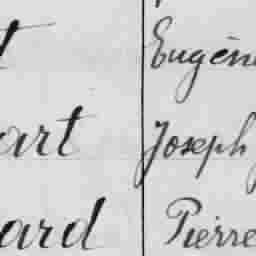 t Eugène
art Joseph
ard Pierre